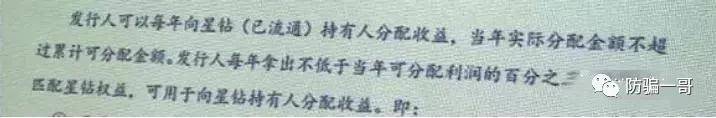 发行人可以每年向星钻（已流通）持有人分配收益，当年实际分配金额不超
过累计可分配金额。发行人每年拿出不低于当年可分配利润的百分之
匹配星钻权益，可用于向星钻持有人分配收益。即：
防骗一哥